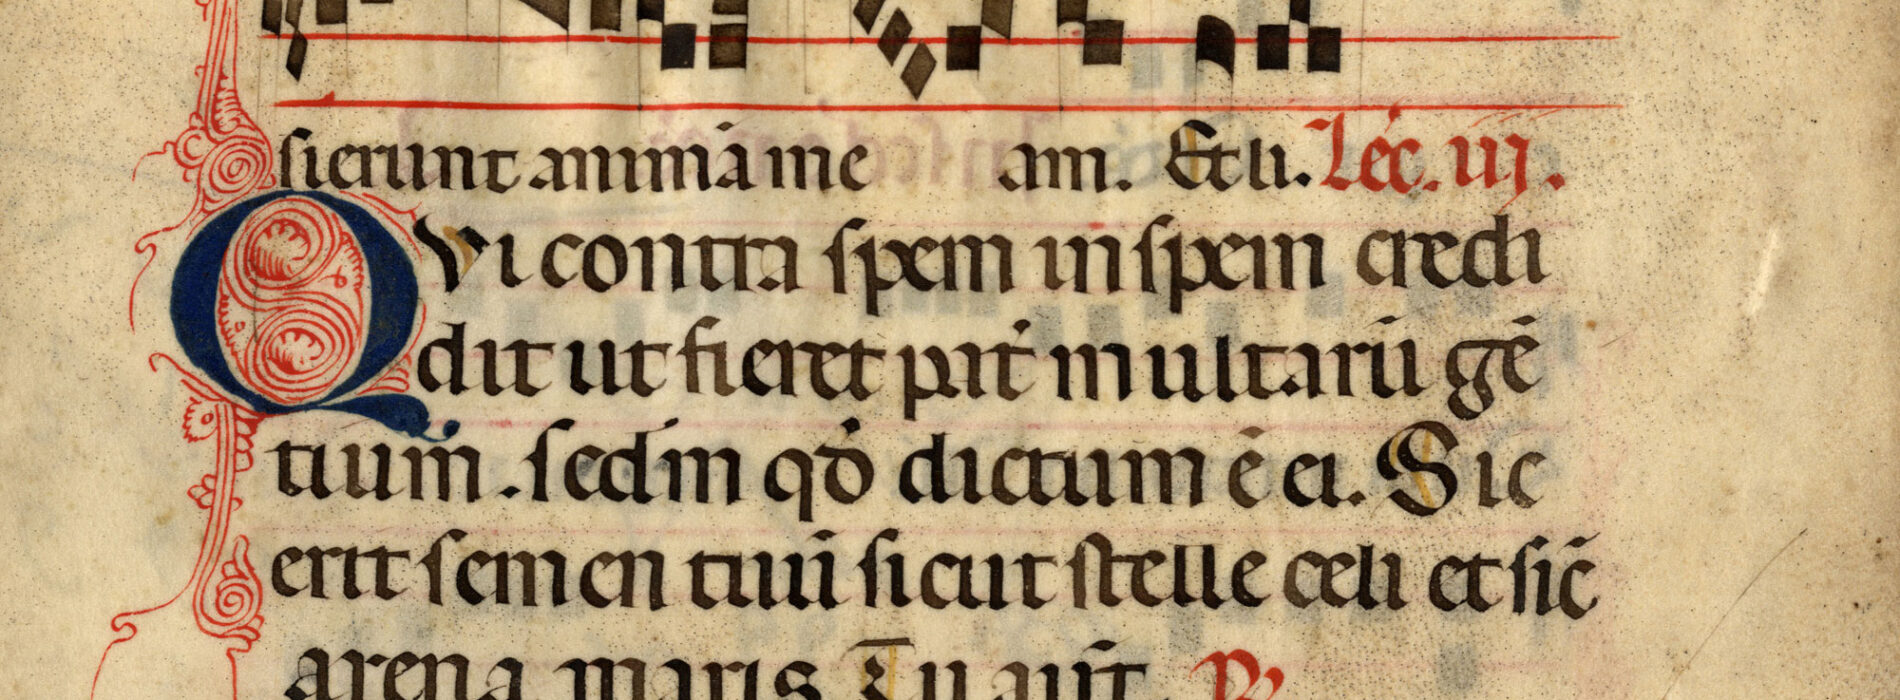 sierunt animā me am. Et li. Lec̄. iij.
QVi contra spem in spem credi
dit ut fieret pat̄ multarū gē
tium. sedm qđ dictum ē ei. Sic
erit semen tuū sicut stelle celi et sic̄
arena maris Tu aūt ℟